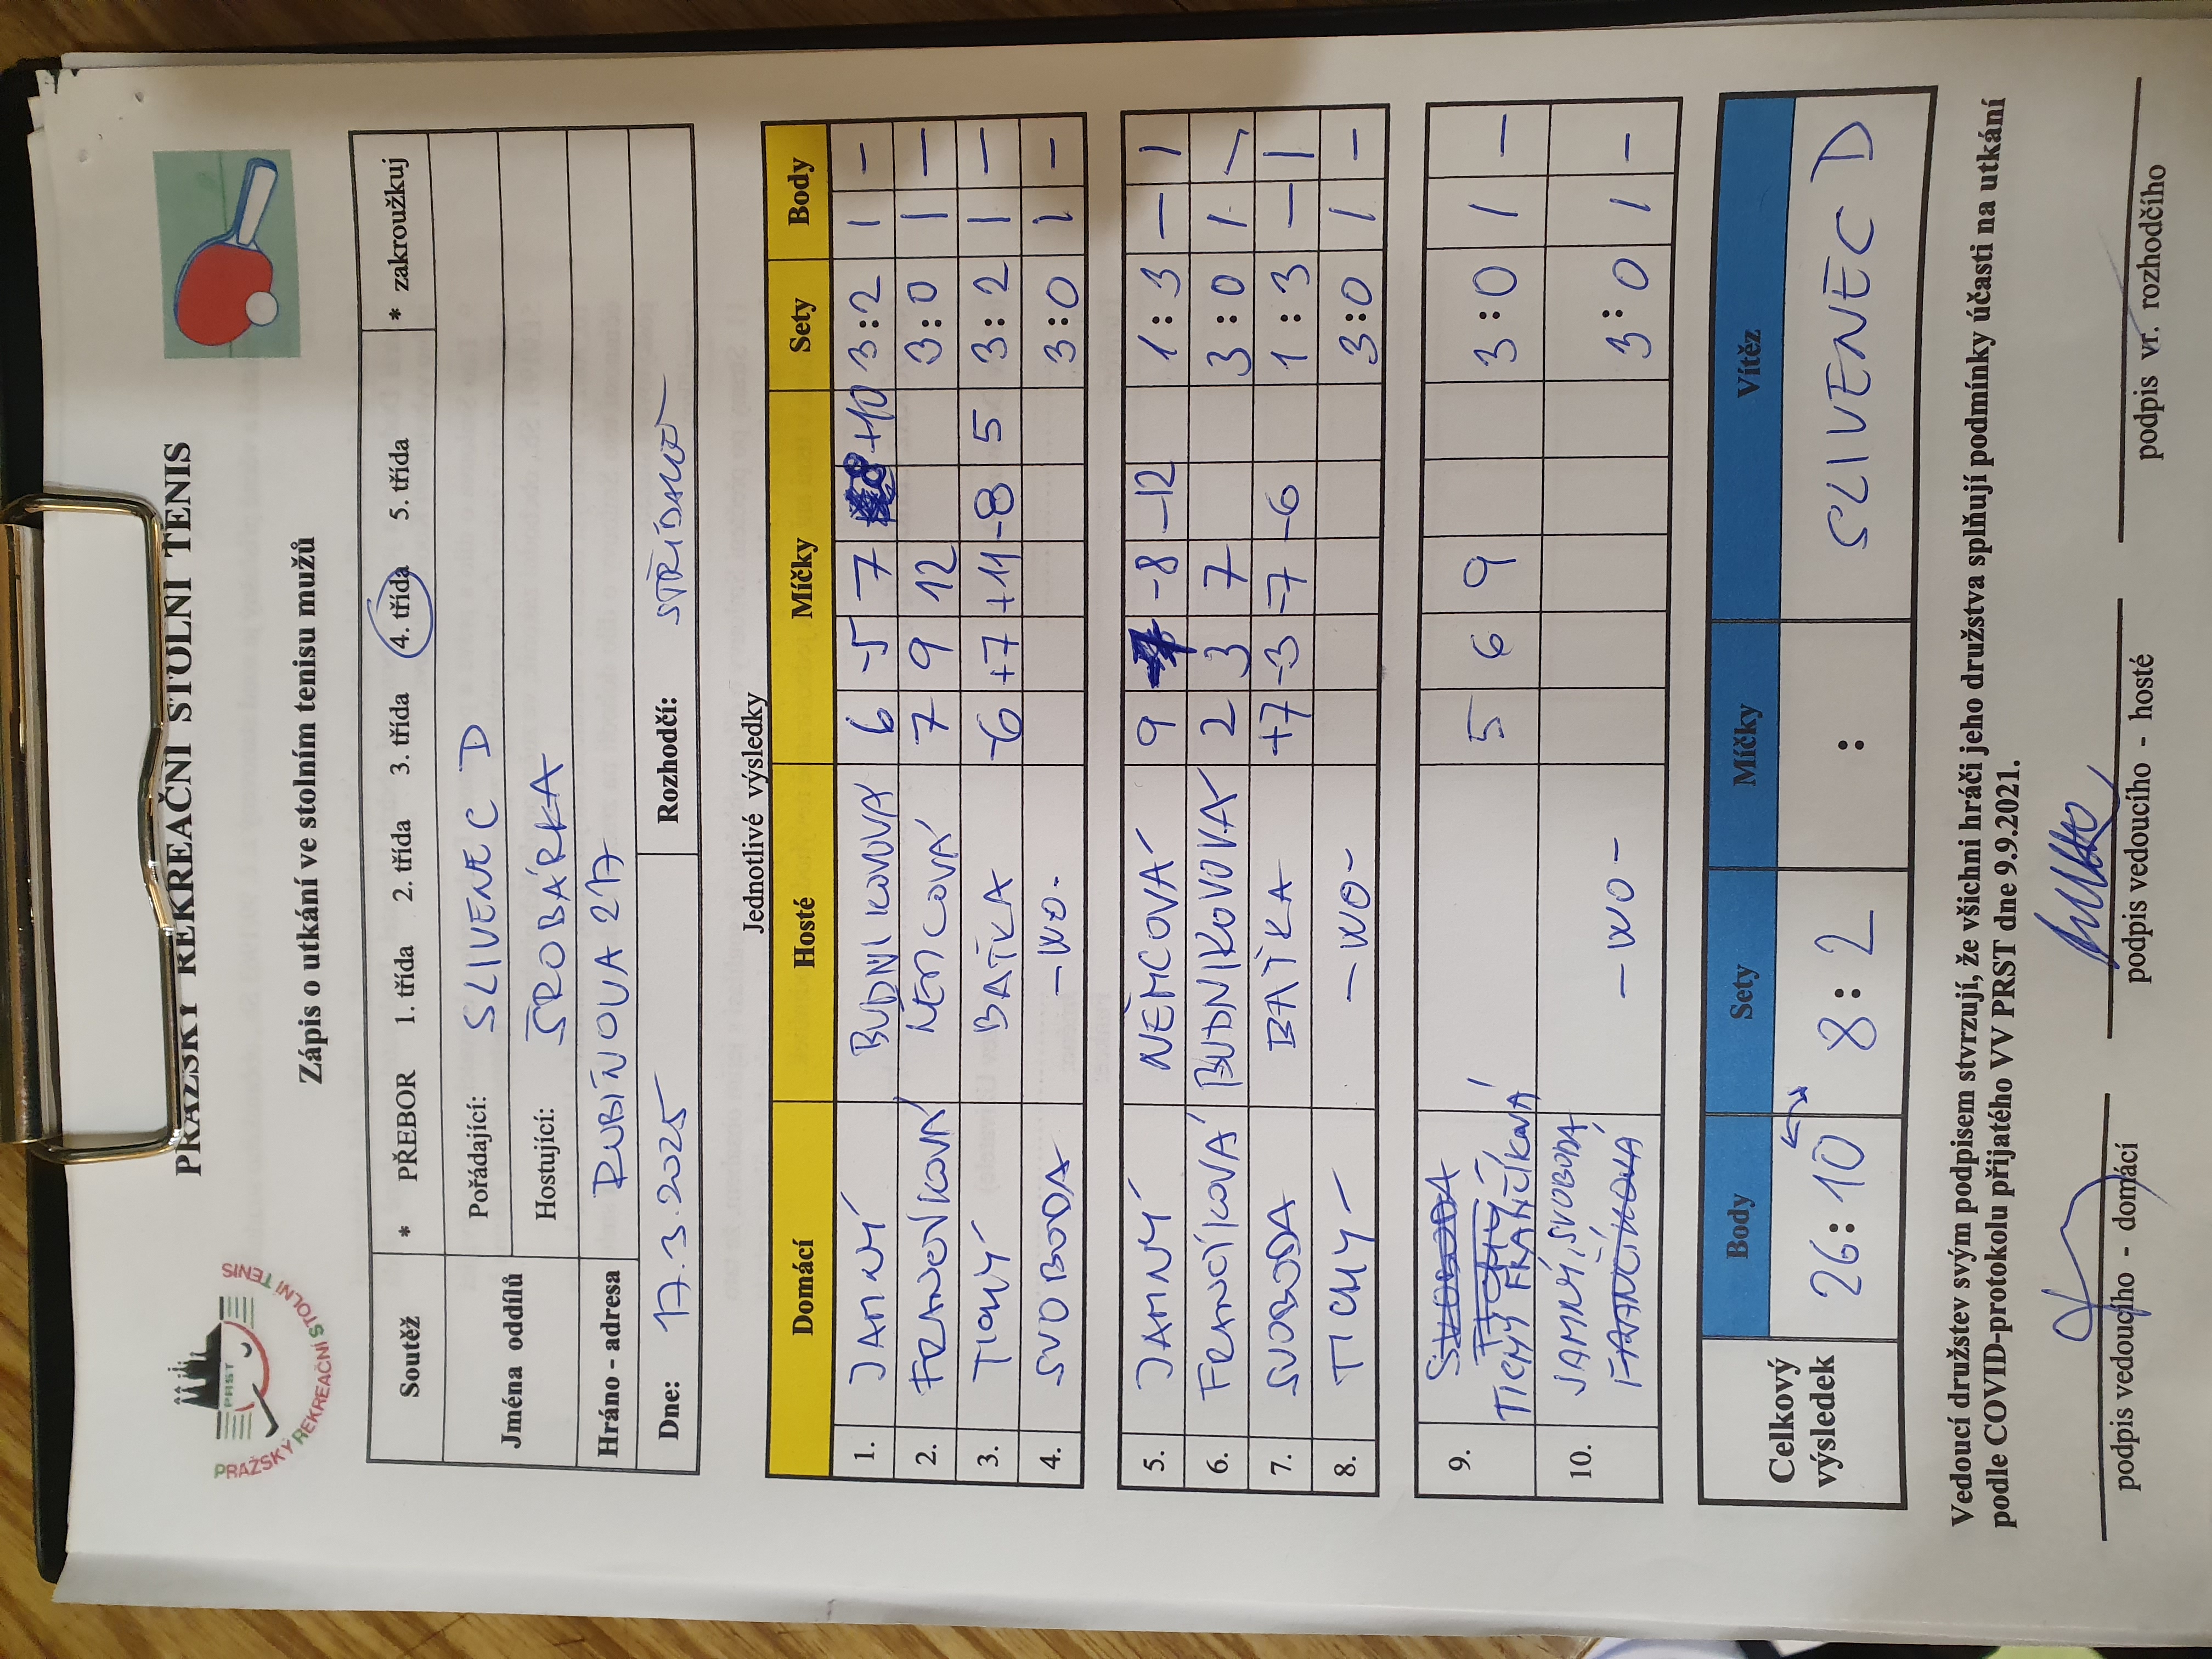 PRAŽSKÝ REKREAČNÍ STOLNÍ TENIS
PRST
PRAŽSKÝ REKREAČNÍ STOLNÍ TENIS
Zápis o utkání ve stolním tenisu mužů
Soutěž * PŘEBOR 1. třída 2. třída 3. třída 4. třída 5. třída * zakroužkuj
Jména oddílů Pořádající: SLIVENEC D
Hostující: ŠROBÁRKA
Hráno - adresa RUBÍNOVA 217
Dne: 17.3.2025 Rozhodčí: STŘÍDAVĚ
Jednotlivé výsledky
Domácí Hosté Míčky Sety Body
1. JAMNÝ BUDNIKOVOVÁ 6 -5 7 +10 3:2 1 –
2. FRANČÍKOVÁ NĚMCOVÁ 7 9 12 3:0 1 –
3. TICHÝ BAŤKA -6 +7 +11 -8 5 3:2 1 –
4. SVOBODA – WO – 3:0 1 –
5. JAMNÝ NĚMCOVÁ 9 -8 -12 1:3 – 1
6. FRANČÍKOVÁ BUDNIKOVOVÁ 2 3 7 3:0 1 –
7. SVOBODA BAŤKA +7 -3 -7 -6 1:3 – 1
8. TICHÝ – WO – 3:0 1 –
9. SVOBODA
TICHÝ
TICHÝ FRANČÍKOVÁ 5 6 9 3:0 1 –
10. JAMNÝ, SVOBODA – WO – 3:0 1 –
FRANČÍKOVÁ
Celkový výsledek Body Sety Míčky Vítěz
26:10 8:2 : SLIVENEC D
Vedoucí družstev svým podpisem stvrzují, že všichni hráči jeho družstva splňují podmínky účasti na utkání
podle COVID-protokolu přijatého VV PRST dne 9.9.2021.
podpis vedoucího - domácí podpis vedoucího - hosté podpis vr. rozhodčího